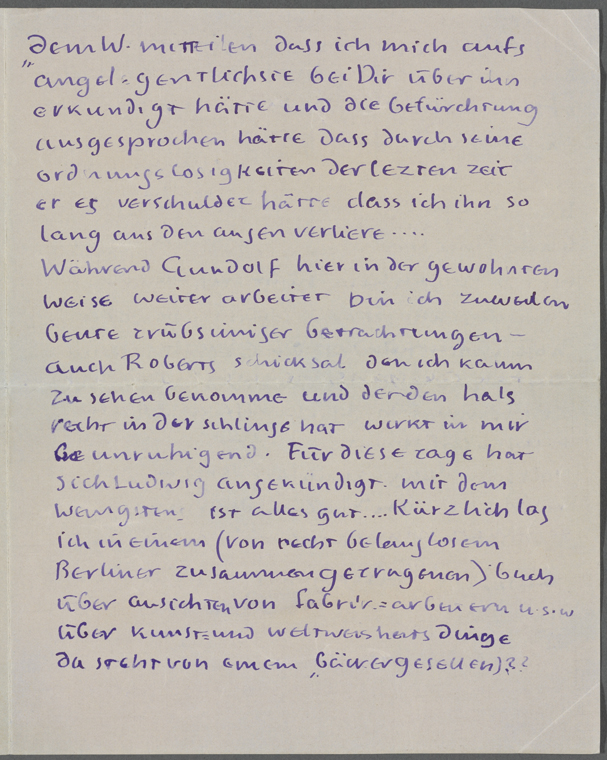 dem W. mitteilen dass ich mich aufs
„angelegentlichste bei Dir über ihn
erkundigt hätte und die befürchtung
ausgesprochen hätte dass durch seine
ordnungslosigkeiten der lezten zeit
er es verschuldet hätte dass ich ihn so
lang aus den augen verliere ....
Während Gundolf hier in der gewohnten
weise weiter arbeitet bin ich zuweilen
beute trübsinniger betrachtungen —
auch Roberts schicksal den ich kaum
zu sehen bekomme und der den hals
recht in der schlinge hat wirkt in mir
beunruhigend. Für diese tage hat
sich Ludwig angekündigt. mit dem
wenigstens ist alles gut .... Kürzlich las
ich in einem (von recht belanglosem
Berliner zusammengetragenen) buch
über ansichten von fabrik=arbeitern u.s.w
über kunst= und weltweisheits dinge
da steht von einem „bäckergesellen)??